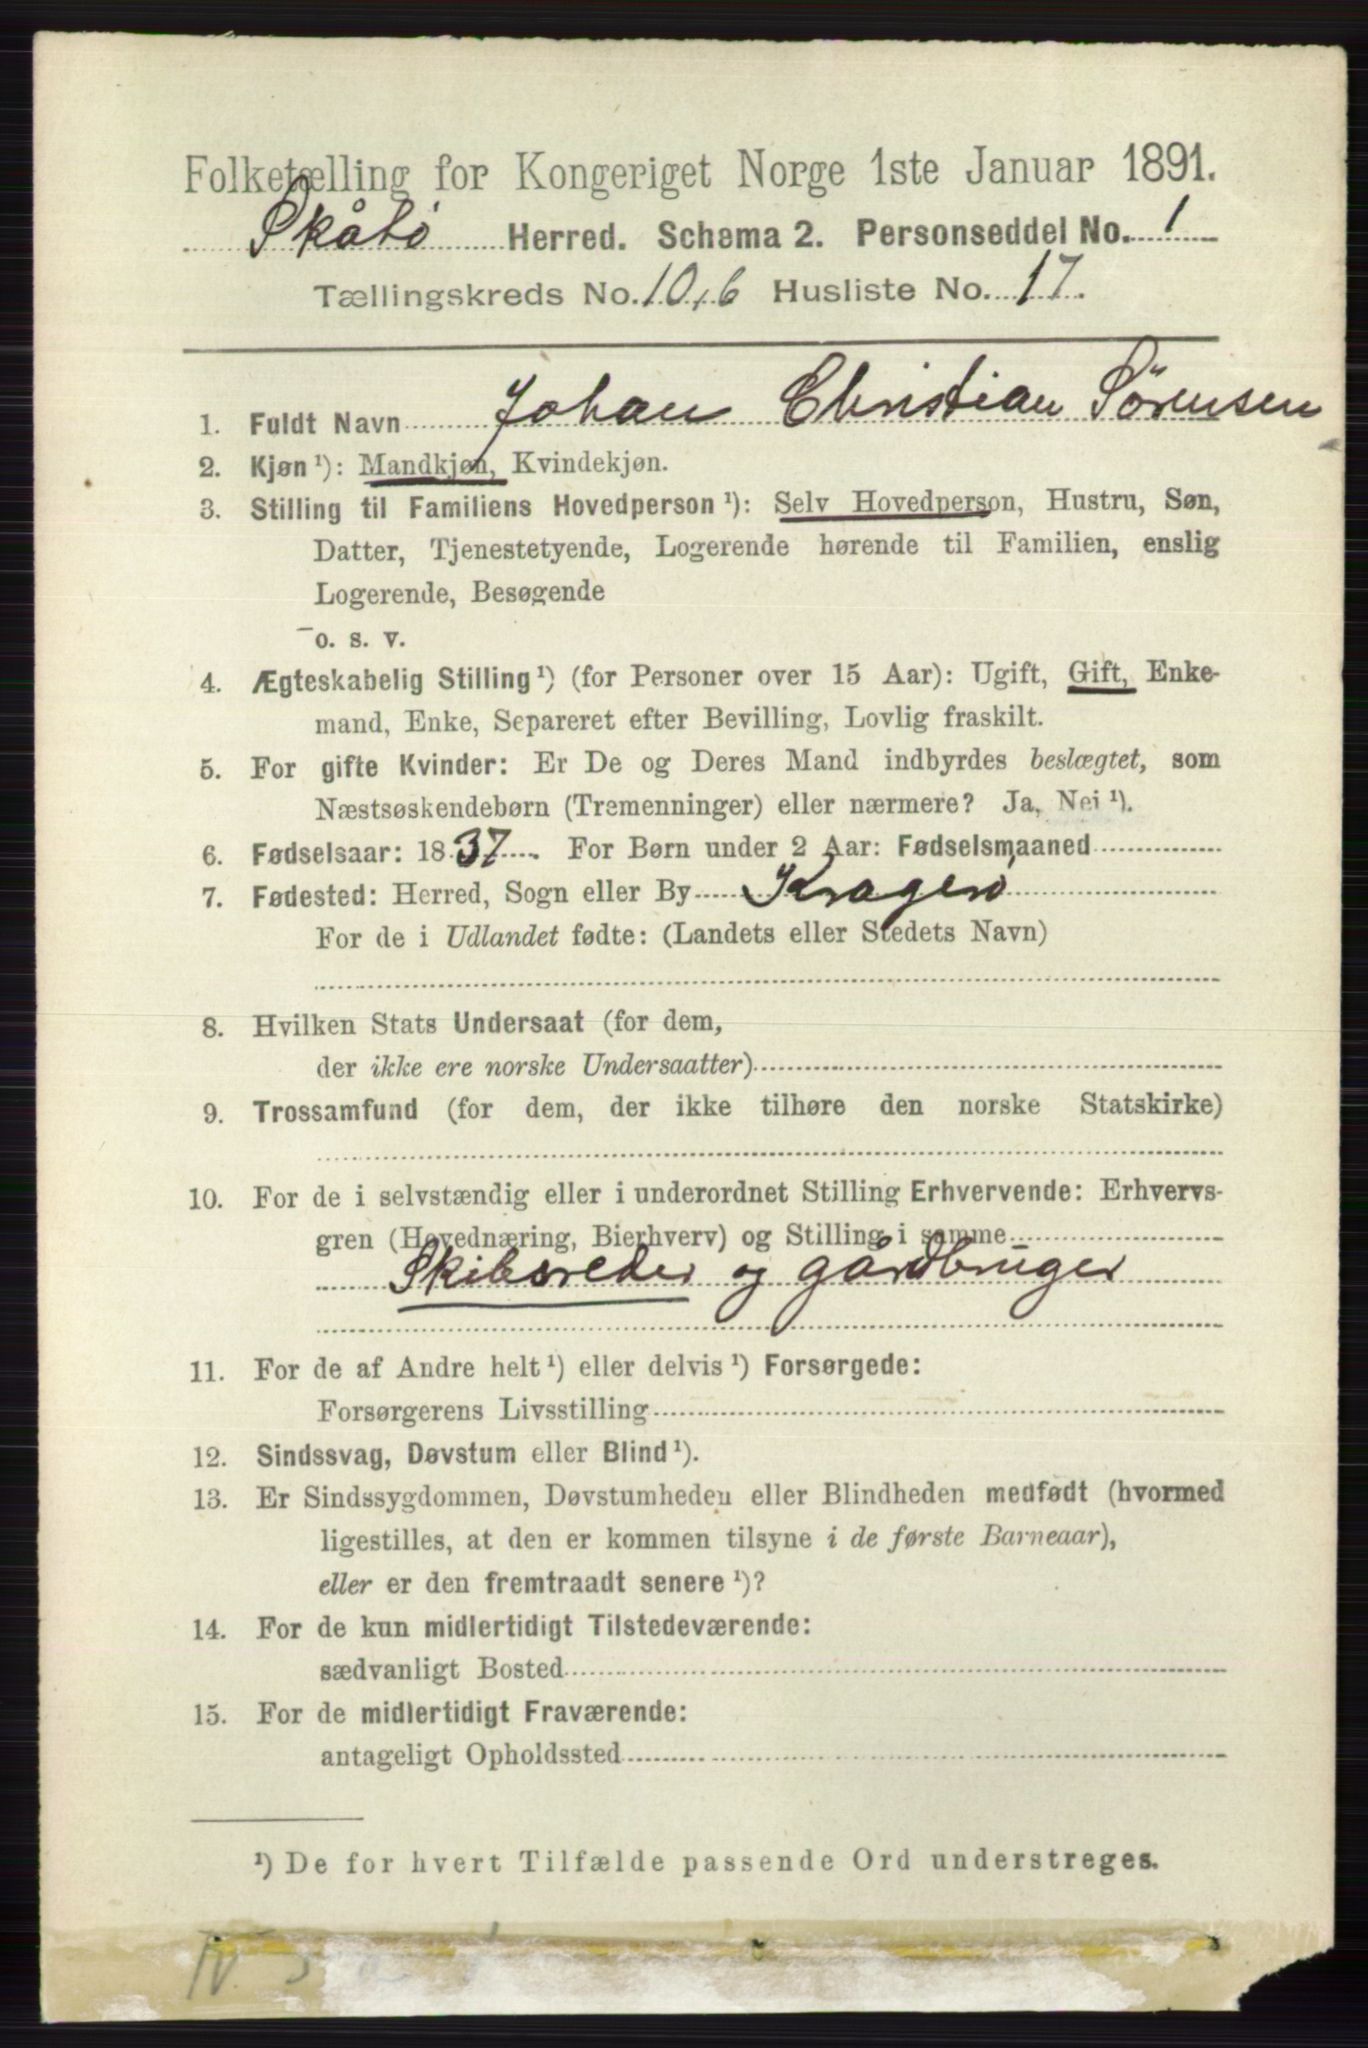 Folketælling for Kongeriget Norge 1ste Januar 1891.
Skåtö Herred. Schema 2. Personseddel No. 1
Tællingskreds No. 10,6 Husliste No. 17.
1. Fuldt Navn Johan Christian Sörensen
2. Kjøn¹): Mandkjøn, Kvindekjøn.
3. Stilling til Familiens Hovedperson¹): Selv Hovedperson, Hustru, Søn,
Datter, Tjenestetyende, Logerende hørende til Familien, enslig
Logerende, Besøgende
o. s. v.
4. Ægteskabelig Stilling¹) (for Personer over 15 Aar): Ugift, Gift, Enke-
mand, Enke, Separeret efter Bevilling, Lovlig fraskilt.
5. For gifte Kvinder: Er De og Deres Mand indbyrdes beslægtet, som
Næstsøskendebørn (Tremenninger) eller nærmere? Ja, Nei¹).
6. Fødselsaar: 1837. For Børn under 2 Aar: Fødselsmaaned
7. Fødested: Herred, Sogn eller By Kragerö
For de i Udlandet fødte: (Landets eller Stedets Navn)
8. Hvilken Stats Undersaat (for dem,
der ikke ere norske Undersaatter)
9. Trossamfund (for dem, der ikke tilhøre den norske Statskirke)
10. For de i selvstændig eller i underordnet Stilling Erhvervende: Erhvervs-
gren (Hovednæring, Bierhverv) og Stilling i samme
Skibsreder og gårdbruger
11. For de af Andre helt¹) eller delvis¹) Forsørgede:
Forsørgerens Livsstilling
12. Sindssvag, Døvstum eller Blind¹).
13. Er Sindssygdommen, Døvstumheden eller Blindheden medfødt (hvormed
ligestilles, at den er kommen tilsyne i de første Barneaar),
eller er den fremtraadt senere¹)?
14. For de kun midlertidigt Tilstedeværende:
sædvanligt Bosted
15. For de midlertidigt Fraværende:
antageligt Opholdssted
¹) De for hvert Tilfælde passende Ord understreges.